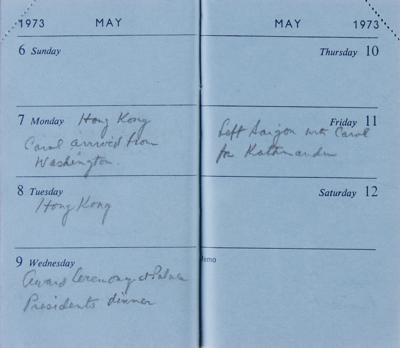 1973 MAY
6 Sunday
7 Monday Hong Kong
Carol arrived from
Washington.
8 Tuesday
Hong Kong
9 Wednesday
Award Ceremony at Palace
Presidents dinner
MAY 1973
Thursday 10
Friday 11
Left Saigon with Carol
for Kathmandu
Saturday 12
Memo